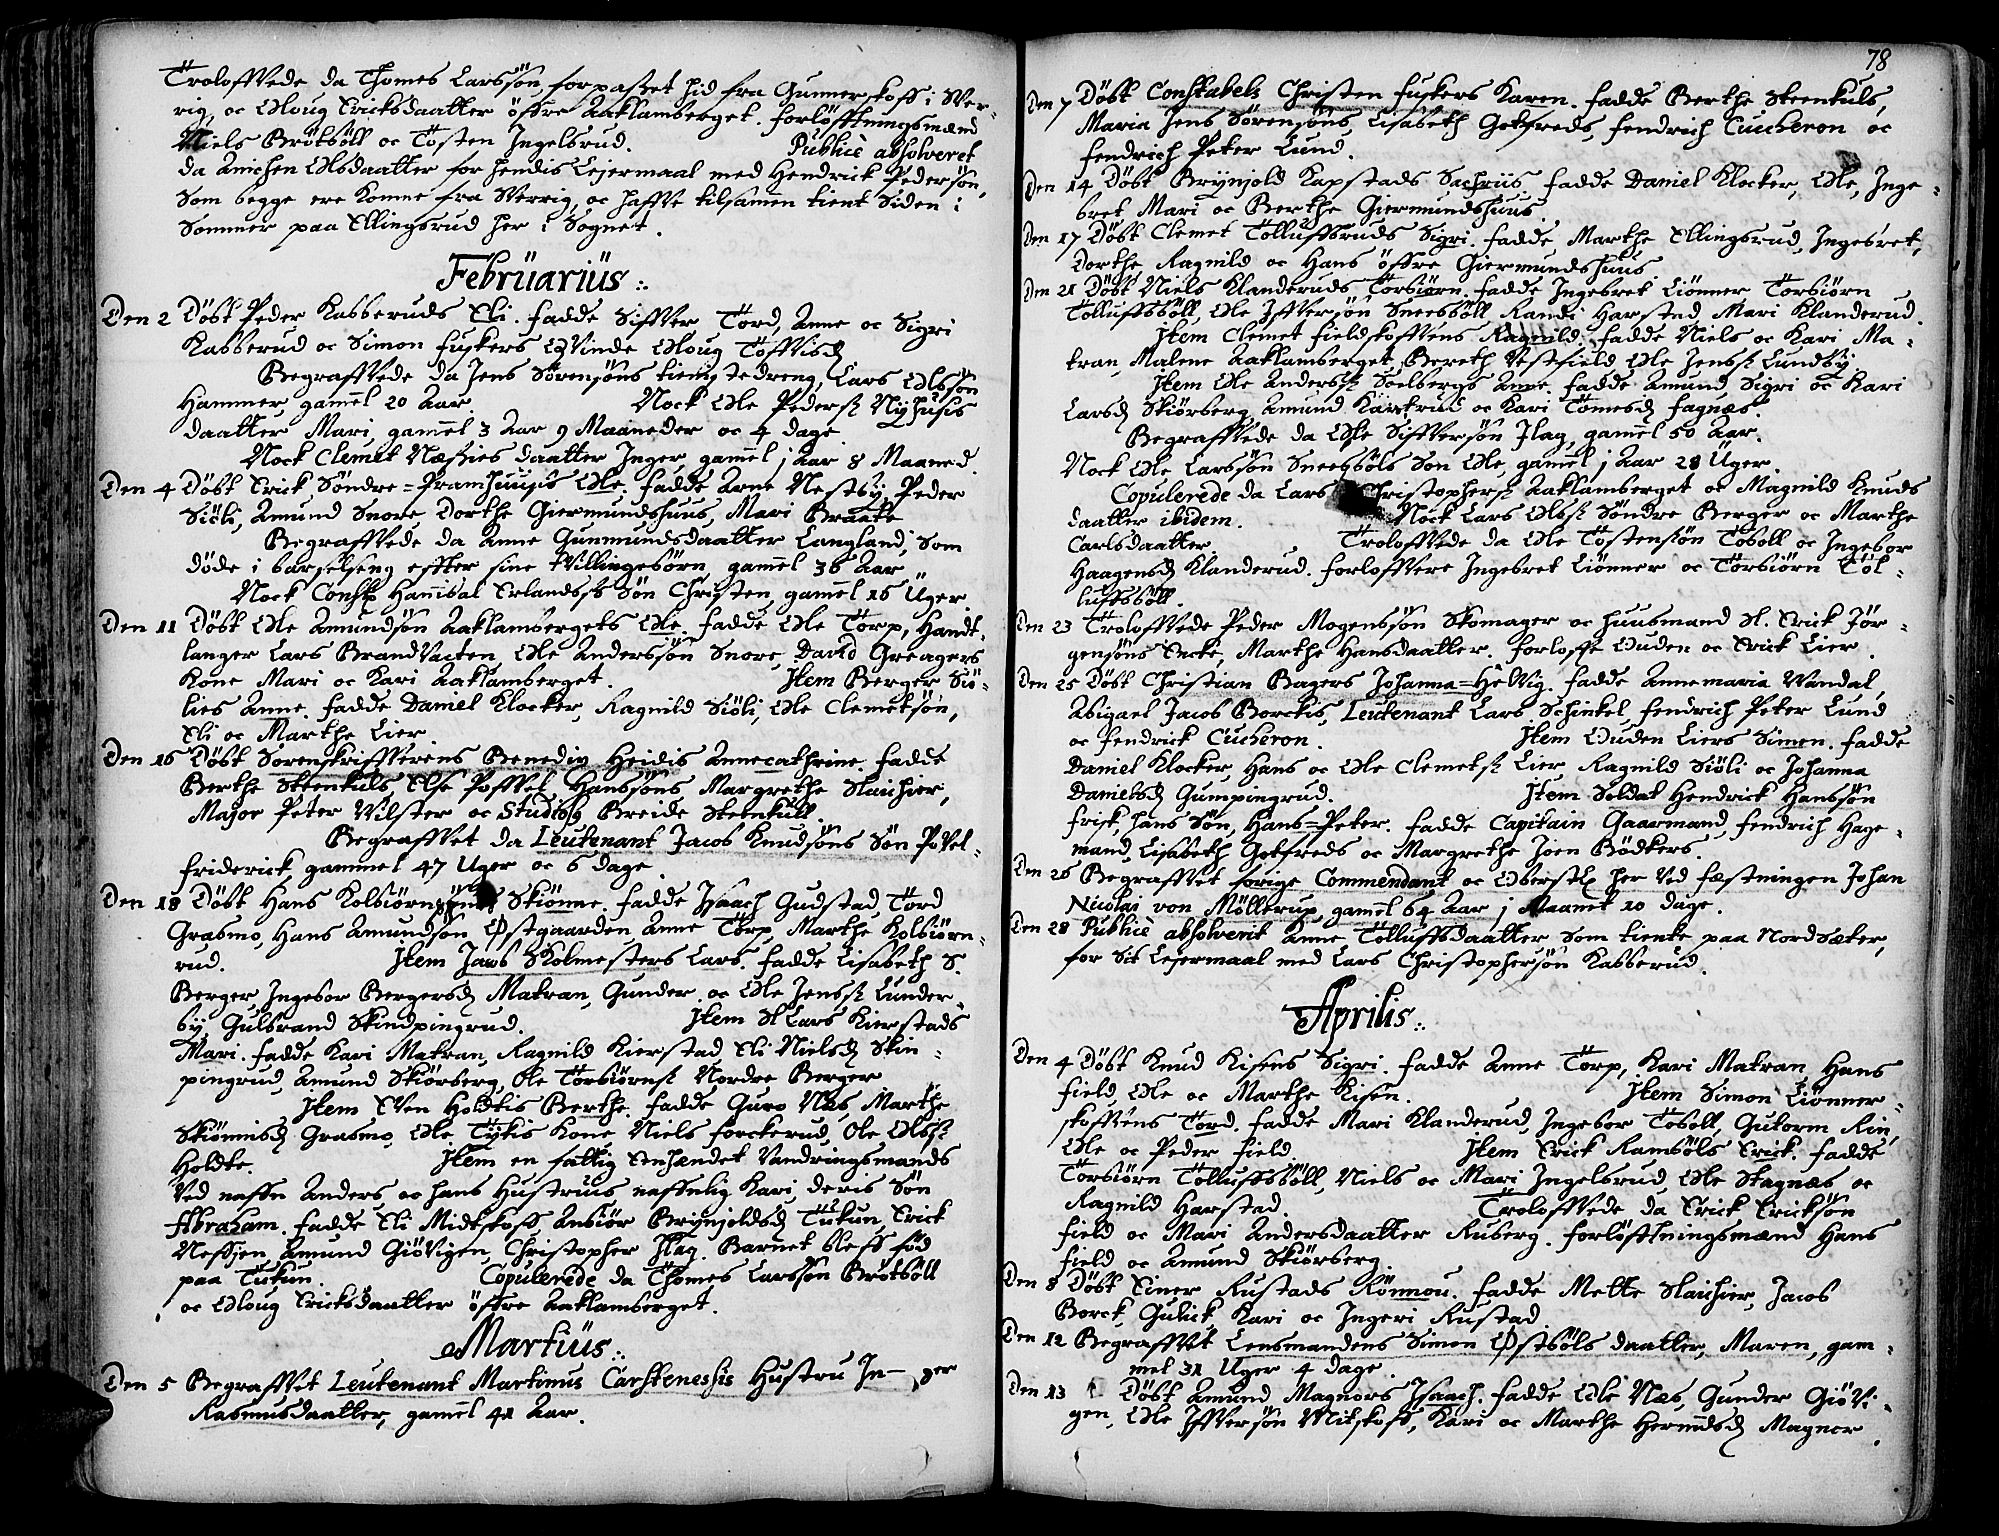 Troloffvede da Thomes Larssøn, forpasset hid fra Gunnerskoff i Sver-
rig, oc Oloug Ericksdaatter øffre Aaklamberget. forløfftningsmænd
Niels Brøtsøll oc Tosten Ingelsrud. Publicè absolveret
da Anichen Olsdaatter for hendis Lejermaal med Hendrick Pedersøn,
Som begge ere komne fra Sverrig, oc haffve tilsamen tient Siden i
Sommer paa Ellingsrud her i Sognet.
Februarius
Den 2 Døbt Peder Kabberuds Eli. fadde Siffver, Tord, Anne oc Sigri
Kabberud oc Simon fuskers Qvinde Oloug Toffvisd.
Begraffvede da Jens Sørensøns tieniste dreng, Lars Olssøn
Hammer, gamel 20 Aar. Nock Ole Peders. Nyhusis
daatter Mari, gamel 3 Aar 9 Maaneder oc 4 dage.
Nock Clemet Næssies daatter Inger gamel j Aar 8 Maaned.
Den 4 Døbt Erick Søndre=Pramhuusis Ole. fadde Arne Nestby, Peder
Siøli, Amund Snore, Dorthe Giermundshuus, Mari Braate
Begraffvede da Anne Gunmundsdaatter Langland, Som
døde i barselseng effter sine Tvillingebørn, gamel 36 Aar
Nock Const. Hannibal Erlands. Søn Christen, gamel 16 Uger.
Den 11 Døbt Ole Amundsøn Aaklambergets Ole. fadde Ole Torp, Handt-
langer Lars Brandvacten, Ole Anderssøn Snore, David Greagers
Kone Mari oc Kari Aaklamberget. Item Berger Siø-
lies Anne. fadde Daniel Klocker, Ragnild Siøli, Ole Clemetsøn,
Eli oc Marthe Lier.
Den 16 Døbt Sorenskriffverens Benedix Heidis Annecathrine. fadde
Berthe Steenkuls, Else Poffvel Hanssøns, Margrethe Slaichier,
Major Peter Vilster oc Studios. Breide Steenkull.
Begraffvet da Leutenant Jacob Knudsøns Søn Povel-
friderick, gammel 47 Uger oc 6 dage.
Den 18 Døbt Hans Kolbiørn Skiønne. fadde Isaach Gudstad, Tord
Grasmo, Hans Amundsøn Østgaarden, Anne Torp, Marthe Kolbiørn-
rud. Item Jacob Skolmesters Lars. fadde Lisabeth S.
Berger, Ingebor Bergersd. Matran, Gunder oc Ole Jens. Lunder-
by, Gulbrand Skindpingrud. Item St Lars Kierstads
Mari. fadde Kari Matran, Ragnild Kierstad, Eli Nielsd. Skin-
pingrud, Amund Skiørberg, Ole Torbiørns. Nordre Berger
Item Even Holdtis Berthe. fadde Guro Næs, Marthe
Skiønnisd. Grasmo, Ole Tykis Kone, Niels forckerud, Ole Ols.
Holdte. Item en fattig Eenhændet Vandringsmands
Ved naffn Anders oc hans Hustrues naffnlig Kari, deris Søn
Abraham. fadde Eli Midtskoff, Anbiør Brynjoldsd. Tukun, Erick
Neffsjen, Amund Giøvigen, Christopher Jlag. Barnet bleff fød
paa Tukun. Copulerede da Thomes Larssøn Brøtsøll
oc Oloug Ericksdaatter øffre Aaklamberget.
Martius
Den 5 Begraffvet Leutenant Martinus Carstenessis Hustru In-ger
Rasmusdaatter, gamel 41 Aar.
78
Den 7 Døbt Constabels Christen fuskers Karen. fadde Berthe Steenkuls,
Maria Jens Sørensøns, Lisabeth Gotfreds, fendrich Cuccheron oc
fendrich Peter Lund.
Den 14 Døbt Brynjold Kapstads Sachriis. fadde Daniel Klocker, Ole, Inge-
bret, Mari oc Berthe Giermundshuus.
Den 17 Døbt Clemet Tolluffsruds Sigri. fadde Marthe Ellingsrud, Ingebret,
Dorthe, Ragnild oc Hans øffre Giermundshuus.
Den 21 Døbt Niels Klanderuds Torbiørn. fadde Ingebret Liønner, Torbiørn
Tolluffsbøll, Ole Iffversøn Sneesbøll, Randi Harstad, Mari Klanderud.
Item Clemet fieldskoffvens Ragnild. fadde Niels oc Kari Ma-
tran, Malene Aaklamberget, Bereth Vestfield, Ole Jens. Lundby
Item Ole Anders. Soelbergs Anne. fadde Amund, Sigri oc Kari
Larsd. Skiørberg, Amund Kaxrud oc Kari Tomesd. fagnæs.
Begraffvede da Ole Siffversøn Jlag, gamel 50 Aar.
Nock Ole Larssøn Sneesbøls Søn Ole, gamel j Aar 28 Uger.
Copulerede da Lars Christophers. Aaklamberget oc Magnild Knuds
daatter ibidem. Nock Lars Ols. Søndre Berger oc Marthe
Carlsdaatter. Troloffvede da Ole Tostensøn Tobøll oc Ingebor
Haagensd. Klanderud. forloffvere Ingebret Liønner oc Torbiørn Tol-
luffsbøll.
Den 23 Troloffvede Peder Mogenssøn Skomager oc huusmand Sl. Erick Jør-
gensøns Encke, Marthe Hansdaatter. forloffre Ouden oc Erick Lier.
Den 25 Døbt Christian Bagers Johanna=Helvig. fadde Annemaria Vandal,
Abigael Jacob Borckis, Leutenant Lars Schinkel, fendrich Peter Lund
oc fendrick Cucheron. Item Ouden Liers Simen. fadde
Daniel Klocker, Hans oc Ole Clemets. Lier, Ragnild Siøli oc Johanna
Danielsd. Gumpingrud. Item Soldat Hendrick Hanssøn
frisk, hans Søn, Hans=Peter. fadde Capitain Gaarmand, fendrich Hage-
mand, Lisabeth Gotfreds oc Margrethe Joen Bødkers.
Den 26 Begraffvet forige Commendant oc Oberst. her ved fæstningen Johan
Nicolai von Møllerup, gamel 64 Aar j Maanet 20 dage.
Den 28 Publicè absolverit Anne Tolluffsdaatter Som tiente paa Nordsæter,
for Sit Lejermaal med Lars Christophersøn Kabberud.
Aprilis
Den 4 Døbt Knud Risens Sigri. fadde Anne Torp, Kari Matran, Hans
field, Ole oc Marthe Risen. Item Simon Liønner-
skoffvens Tord. fadde Mari Klanderud, Ingebor Tobøll, Gutorm Rin,
Ole oc Peder field. Item Erick Ramsøls Erick. fadde
Torbiørn Tolluffsbøll, Niels oc Mari Ingelsrud, Ole Stagnæs oc
Ragnild Harstad. Troloffvede da Erick Ericksøn
field oc Mari Andersdaatter Ruberg. forløfftningsmænd Hans
field oc Amund Skiørberg.
Den 8 Døbt Einer Rustads Rønnou. fadde Mette Slaichier, Jacob
Borck, Gulick, Kari oc Ingeri Rustad.
Den 12 Begraffvet Lensmandens Simon Østbøls daatter, Maren, gam-
mel 31 Uger 4 dage.
Den 13 Døbt Amund Magnors Isaach. fadde Ole Næs, Gunder Giøvi-
gen, Ole Iffversøn Mitskoff, Kari oc Marthe Hermdsd. Magnor.